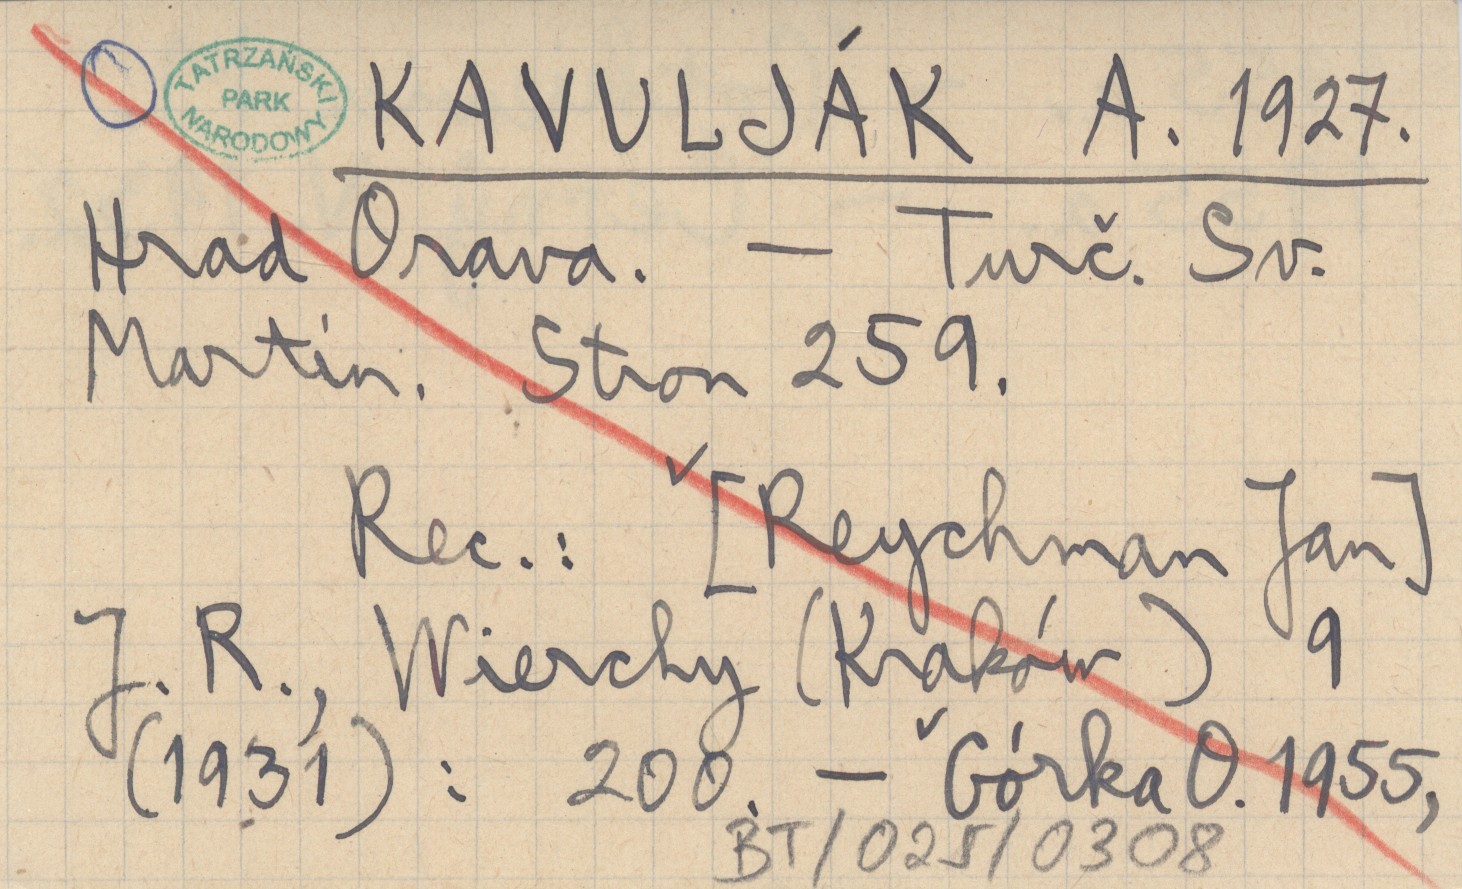 TATRZAŃSKI
PARK
NARODOWY
KAVULJÁK A. 1927.
Hrad Orava. — Turč. Sv.
Martin. Stron 259.
Rec.: [Reychman Jan]
J. R., Wierchy (Kraków) 9
(1931): 200. — Górka O. 1955,
BT/025/0308